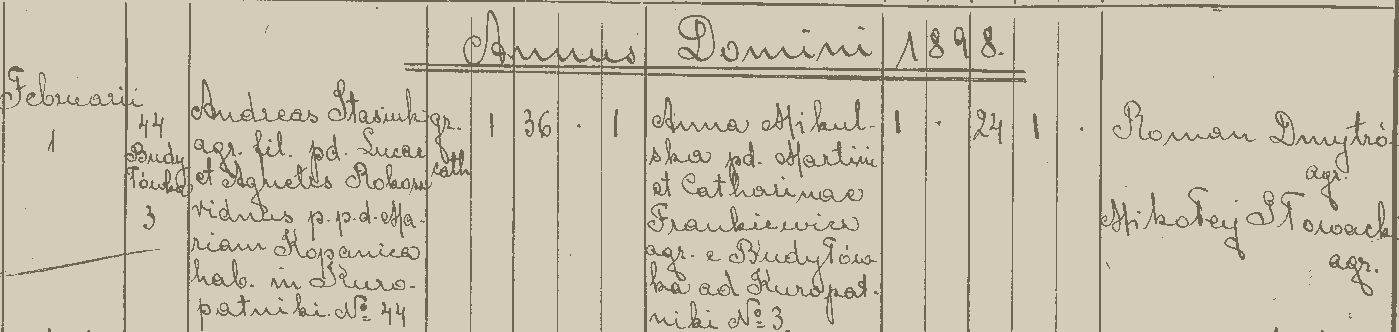 Annus Domini 1898.
Februarii
1
44
Budy
Tówka
3
Andreas Stasiuk
agr. fil. pd. Lucae
et Agnetis Rokosz
viduus p. p. d. Ma-
riam Kopanica
hab. in Kuro-
patniki. No 44
gr.
cath
1 36 · 1
Anna Mikul-
ska pd. Martini
et Catharinae
Frankiewicz
agr. e Budyłów
ka ad Kuropat-
niki No 3
1 · 24 1 ·
Roman Dmytró
agr.
Mikołej Słowack
agr.